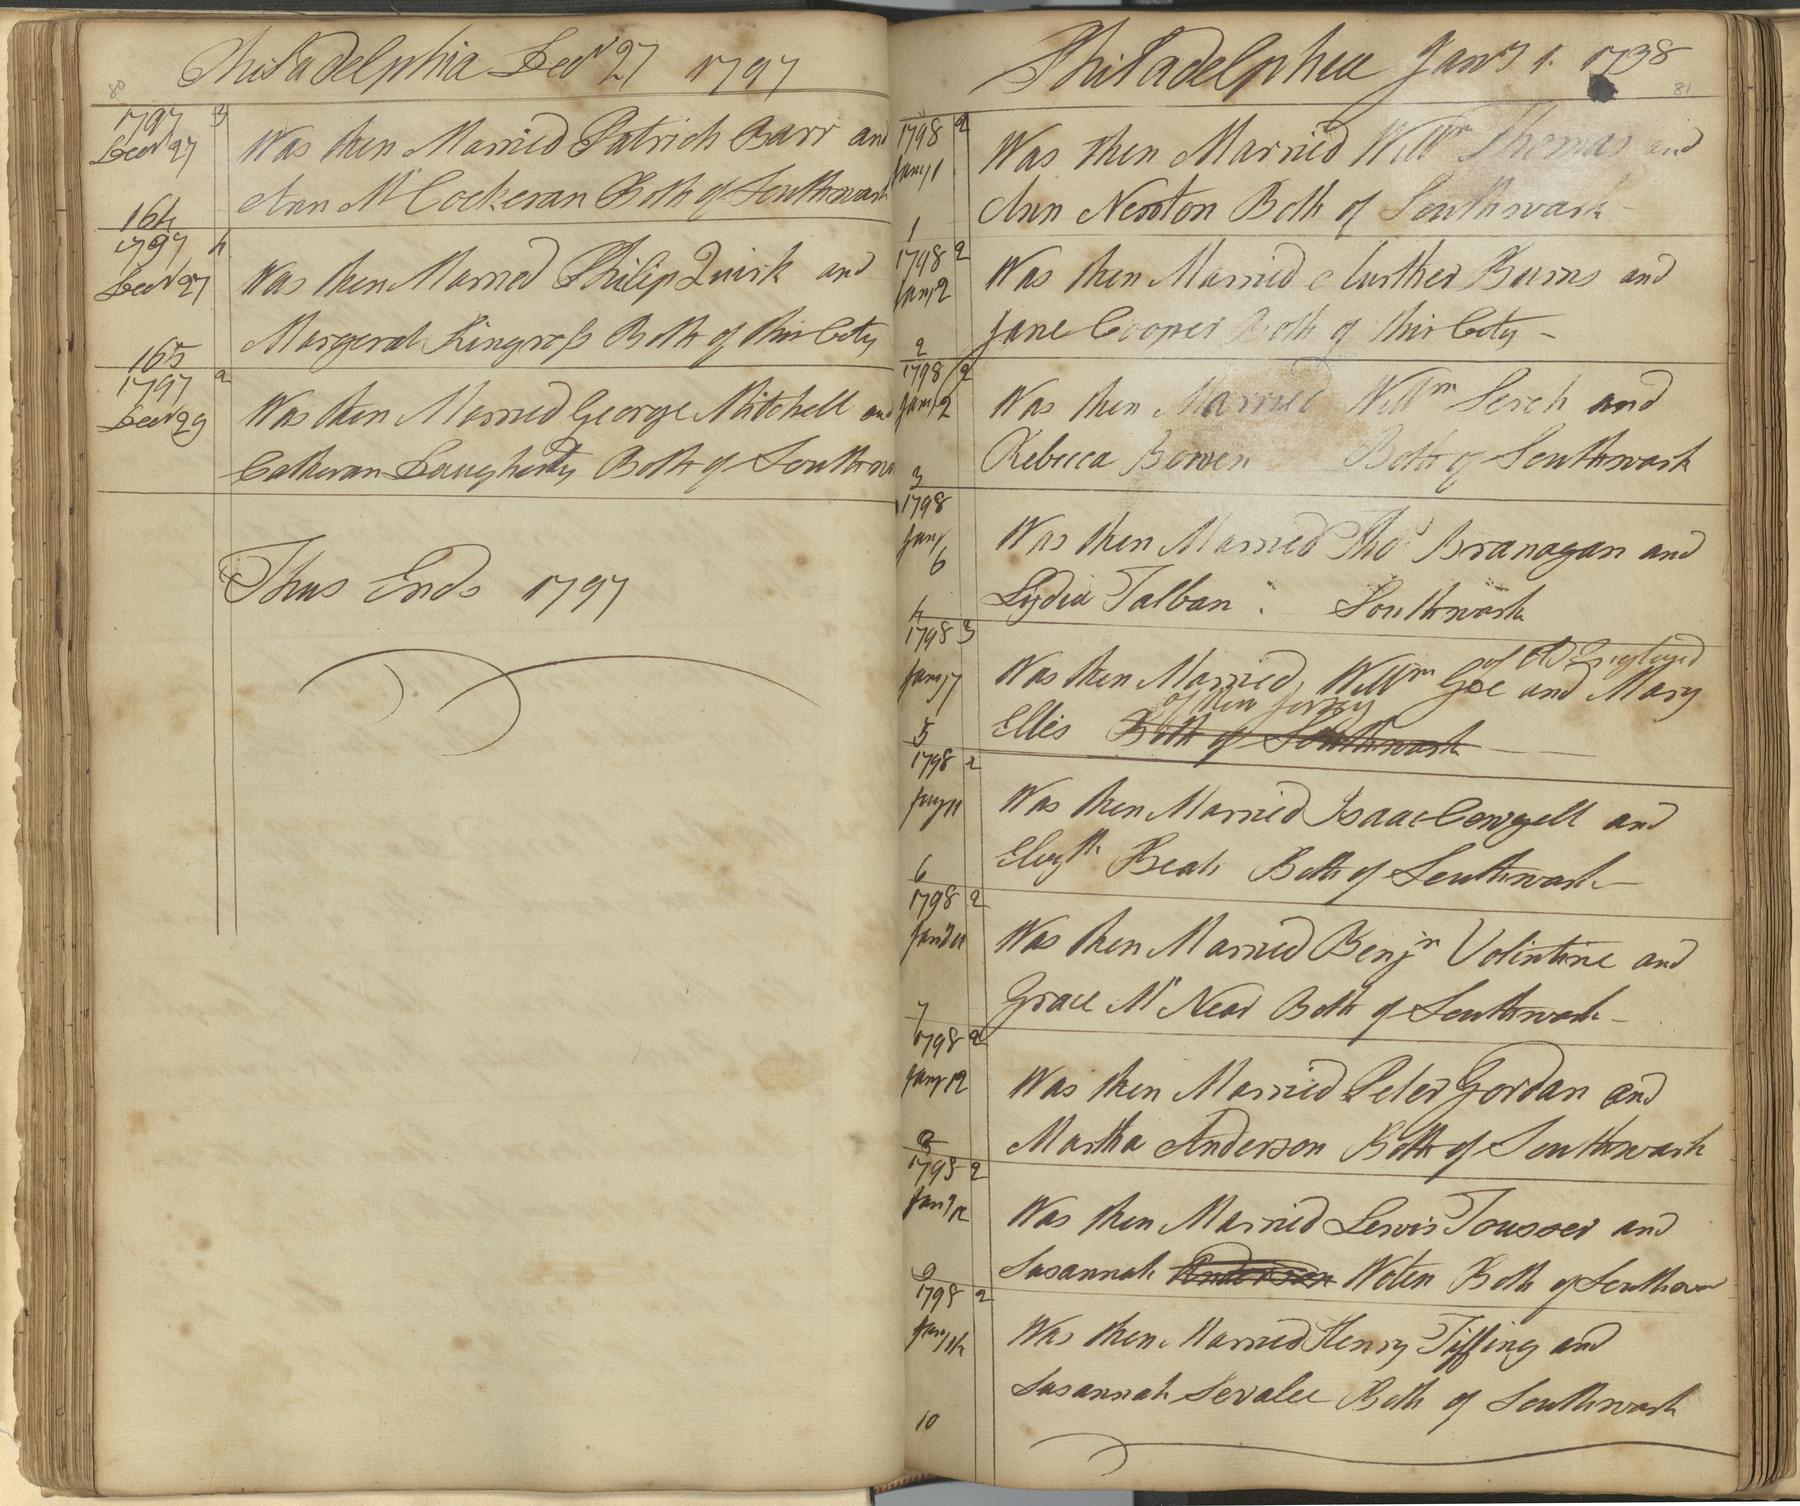 Philadelphia Decr 27 1797
80
1797 3
Decr 27
Was then Married Patrick Barr and
Ann Mc Cockeran Both of Southwark
164
1797 4
Decr 27
Was then Married Philip Quirk and
Margerat Kingroſs Both of this City
165
1797 2
Decr 29
Was then Married George Mitchell and
Catheran Daugherty Both of Southwa
Thus Ends 1797
Philadelphia Jany 1. 1798
81
1798 2
Jany 1
Was then Married Willm Thomas and
Ann Newton Both of Southwark
1
1798 2
Jany 2
Was then Married Aurther Burns and
Jane Cooper Both of this City
2
1798 2
Jany 2
Was then Married Willm Serch and
Rebecca Bowen Both of Southwark
3
1798
Jany
6
Was then Married Thos Branagan and
Lydia Talban Southwark
4
1798 3
Jany 7
of England
Was then Married, Willm Goe and Mary
of New Jersey
Elles Both of Southwark
5
1798 2
Jany 11
Was then Married Isaac Cowgell and
Elizth Beak Both of Southwark
6
1798 2
Jany 11
Was then Married Benjn Volintine and
Grace Mc Near Both of Southwark
7
1798 2
Jany 12
Was then Married Peter Gordan and
Martha Anderson Both of Southwark
8
1798 2
Jany 12
Was then Married Lewis Tousser and
Susannah Anderson Woten Both of Southwar
9
1798 2
Jany 14
Was then Married Henry Tiffing and
Susannah Sevalee Both of Southwark
10